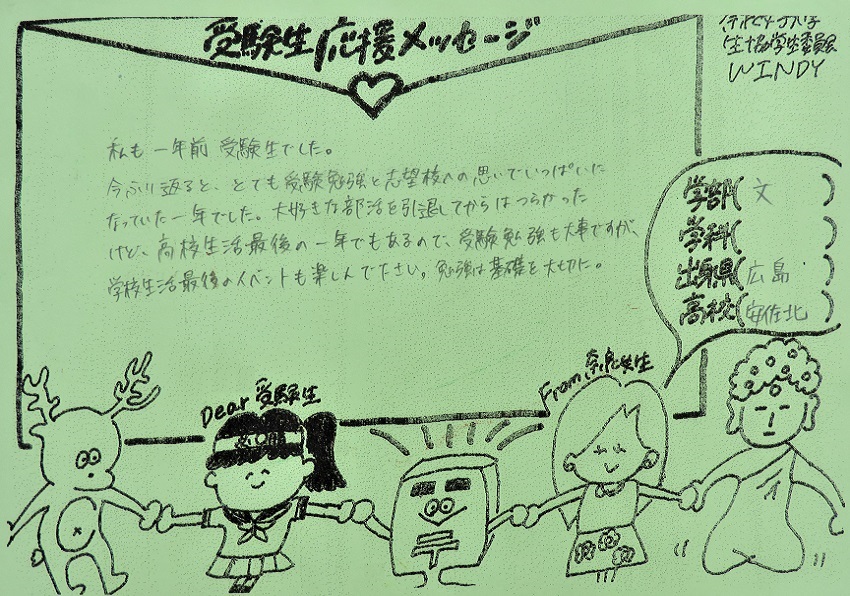 受験生応援メッセージ
生協学生委員会
WINDY
私も一年前 受験生でした。
今ふり返ると、とても受験勉強と志望校への思いでいっぱいに
なっていた一年でした。大好きな部活を引退してからはつらかった
けど、高校生活最後の一年でもあるので、受験勉強も大事ですが、
学校生活最後のイベントも楽しんで下さい。勉強は基礎を大切に。
学部( 文 )
学科( )
出身県( 広島 )
高校( 安佐北 )
Dear 受験生
From 奈良女生
〒